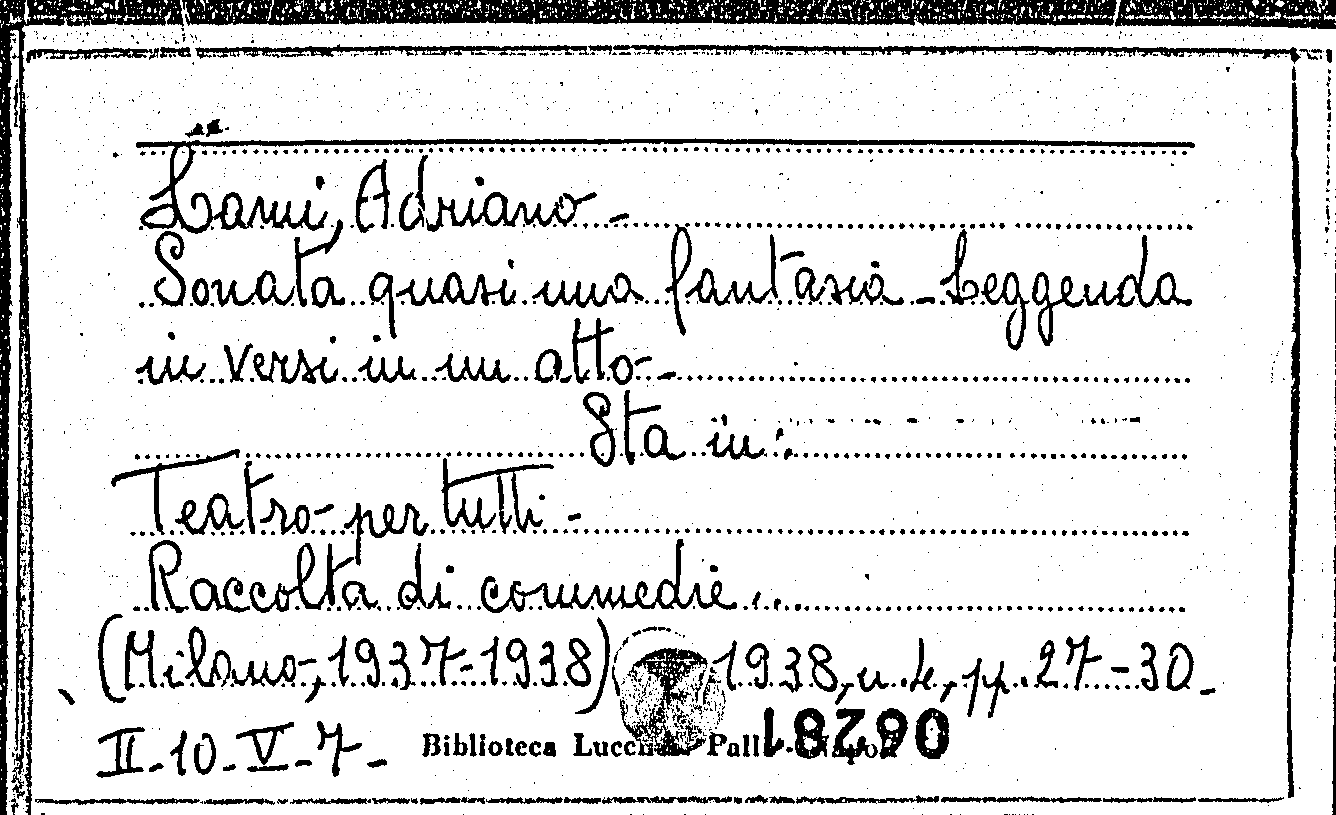 Lami, Adriano -
Sonata quasi una fantasia - Leggenda
in versi in un atto -
Sta in:
Teatro per tutti -
Raccolta di commedie...
(Milano, 1937-1938) 1938, n. 4, pp. 27-30.
II-10-V-7- Biblioteca